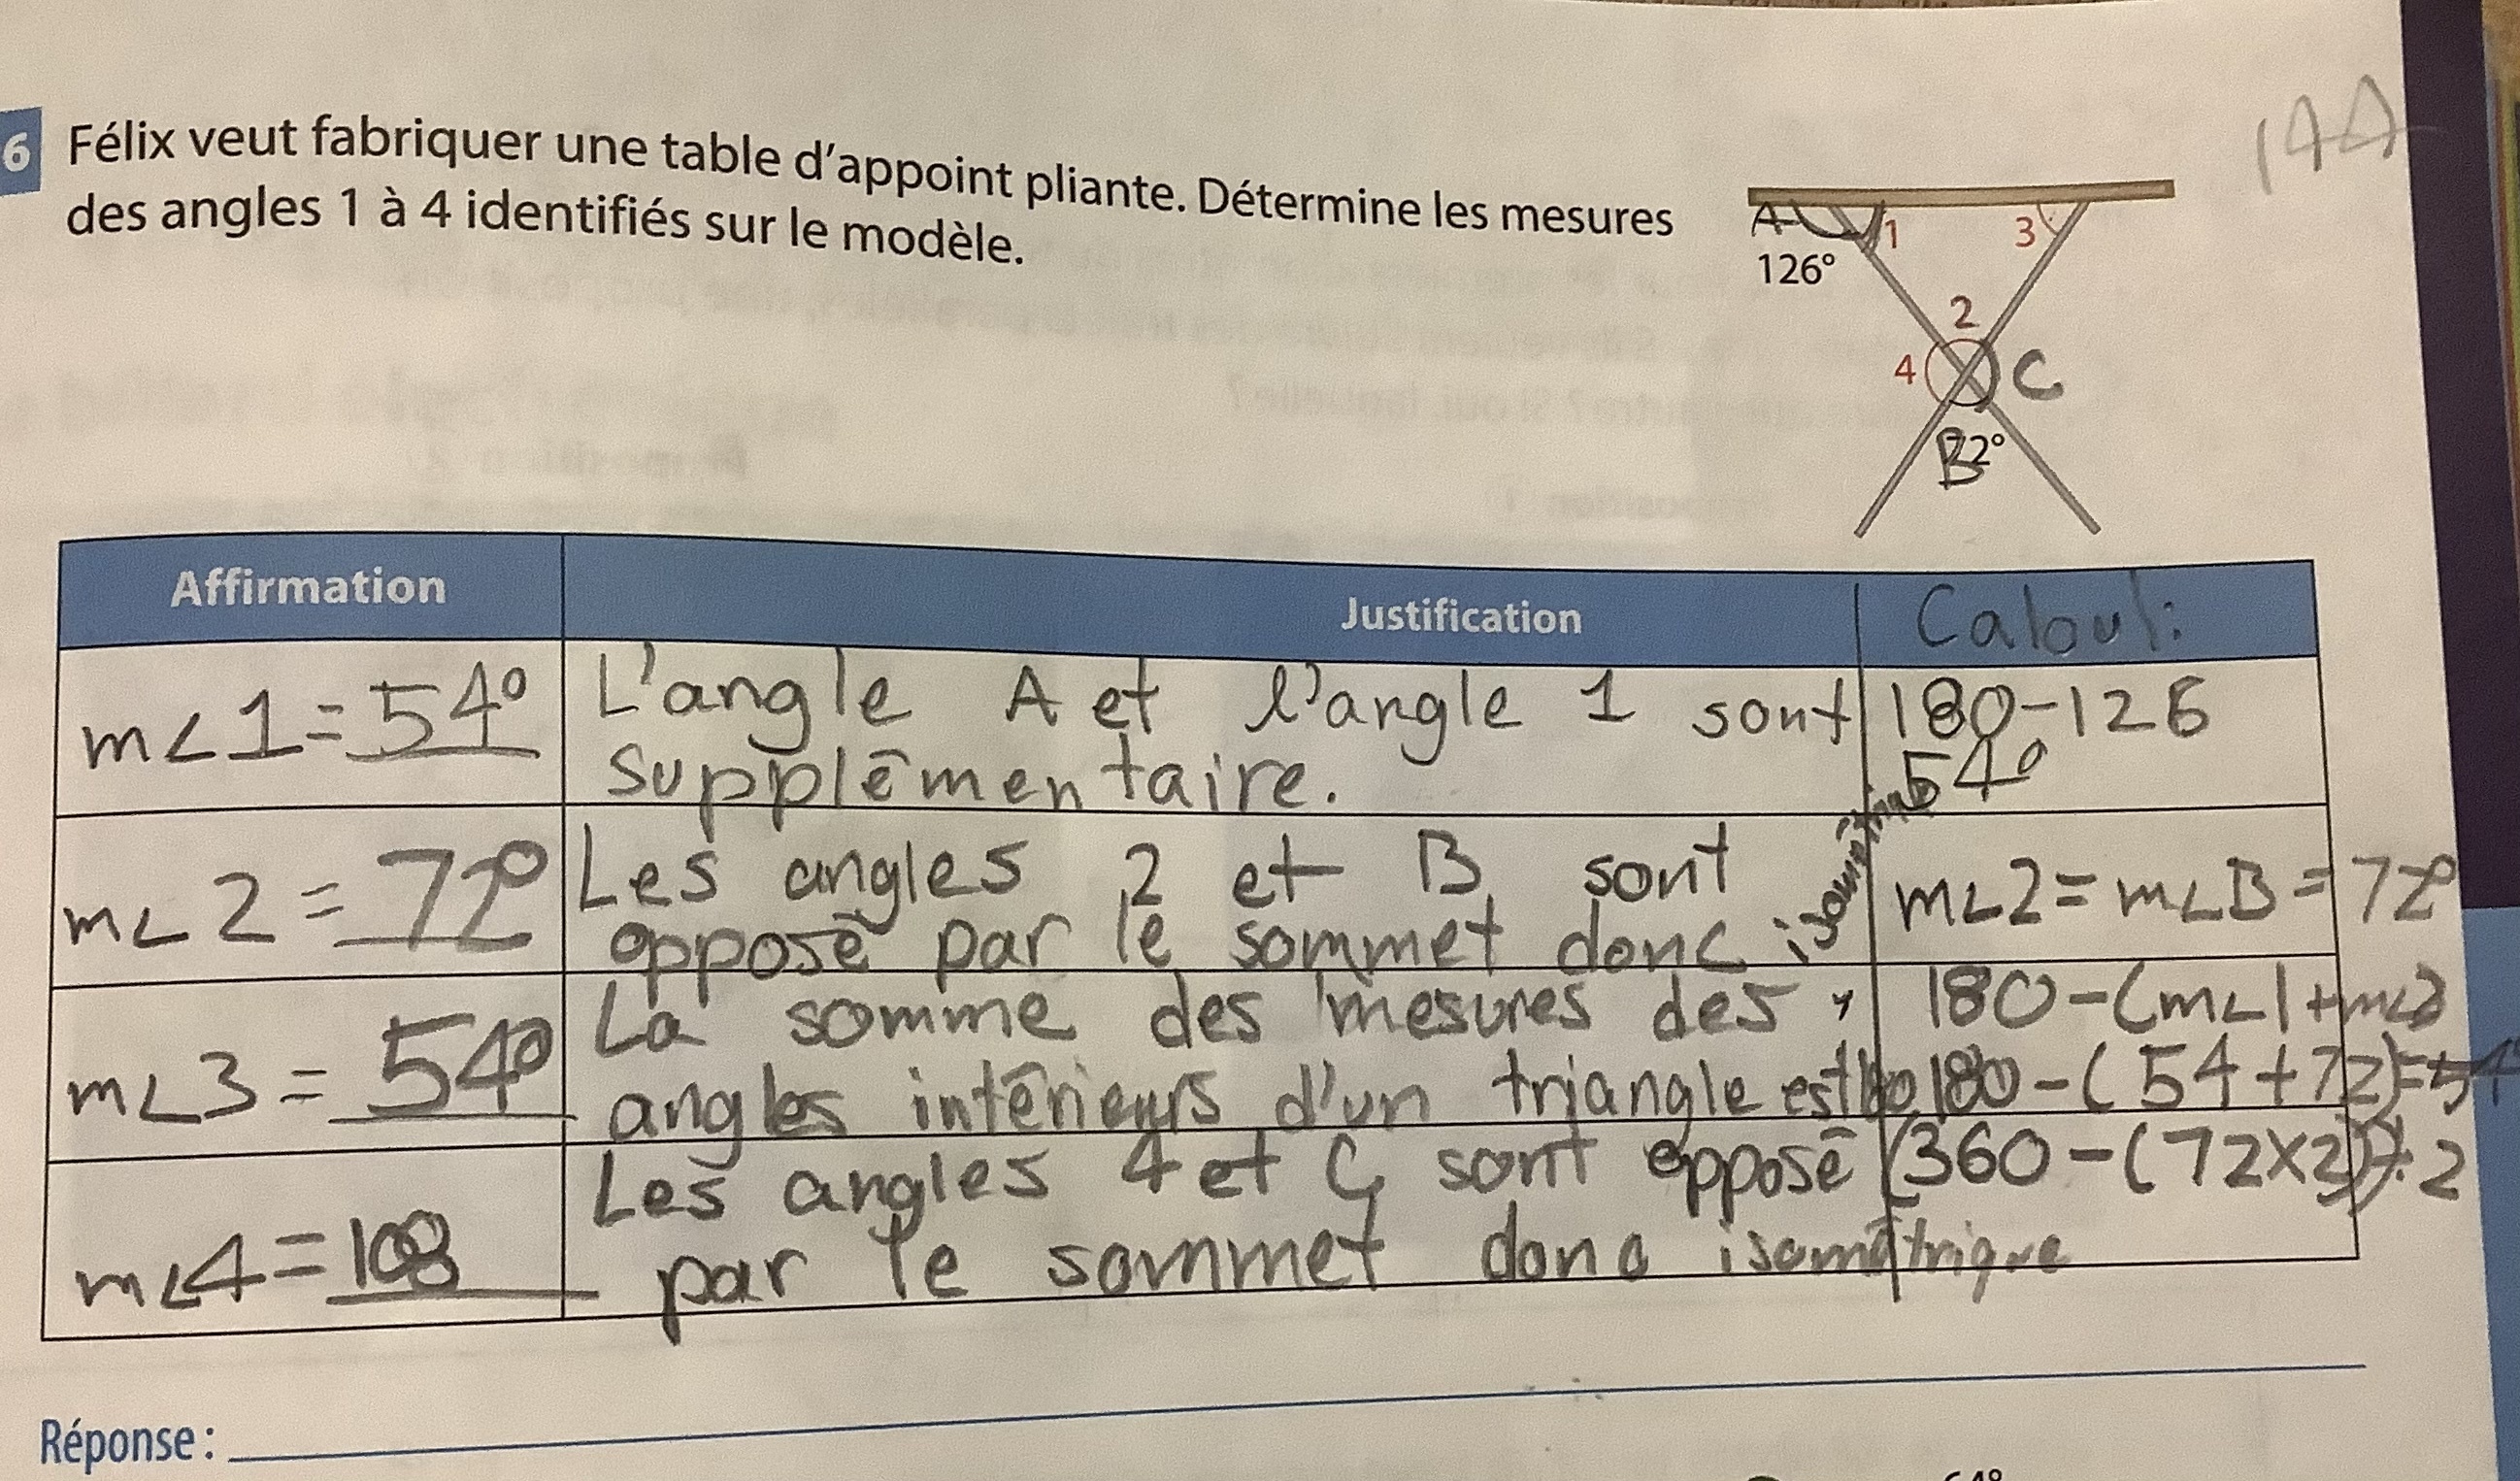 6 Félix veut fabriquer une table d'appoint pliante. Détermine les mesures
des angles 1 à 4 identifiés sur le modèle.
144
A
1
3
126°
2
4
C
B
72°
Affirmation
Justification
Calcul:
m<1=54°
L'angle A et l'angle 1 sont
supplémentaire.
180-126
54°
m<2=72°
Les angles 2 et B sont
opposé par le sommet donc isométrique
m<2=m<B=72°
m<3=54°
La somme des mesures des
angles intérieurs d'un triangle est 180
180-(m<1+m<2
180-(54+72)=54
m<4=108
Les angles 4 et C sont opposé
par le sommet donc isométrique
(360-(72×2))÷2
Réponse: